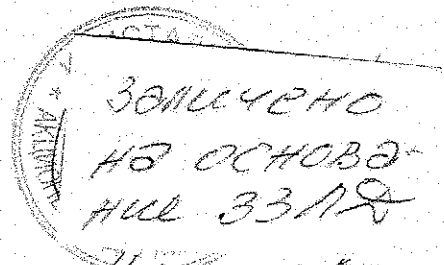 Заличено
на основа-
ние ЗЗЛД